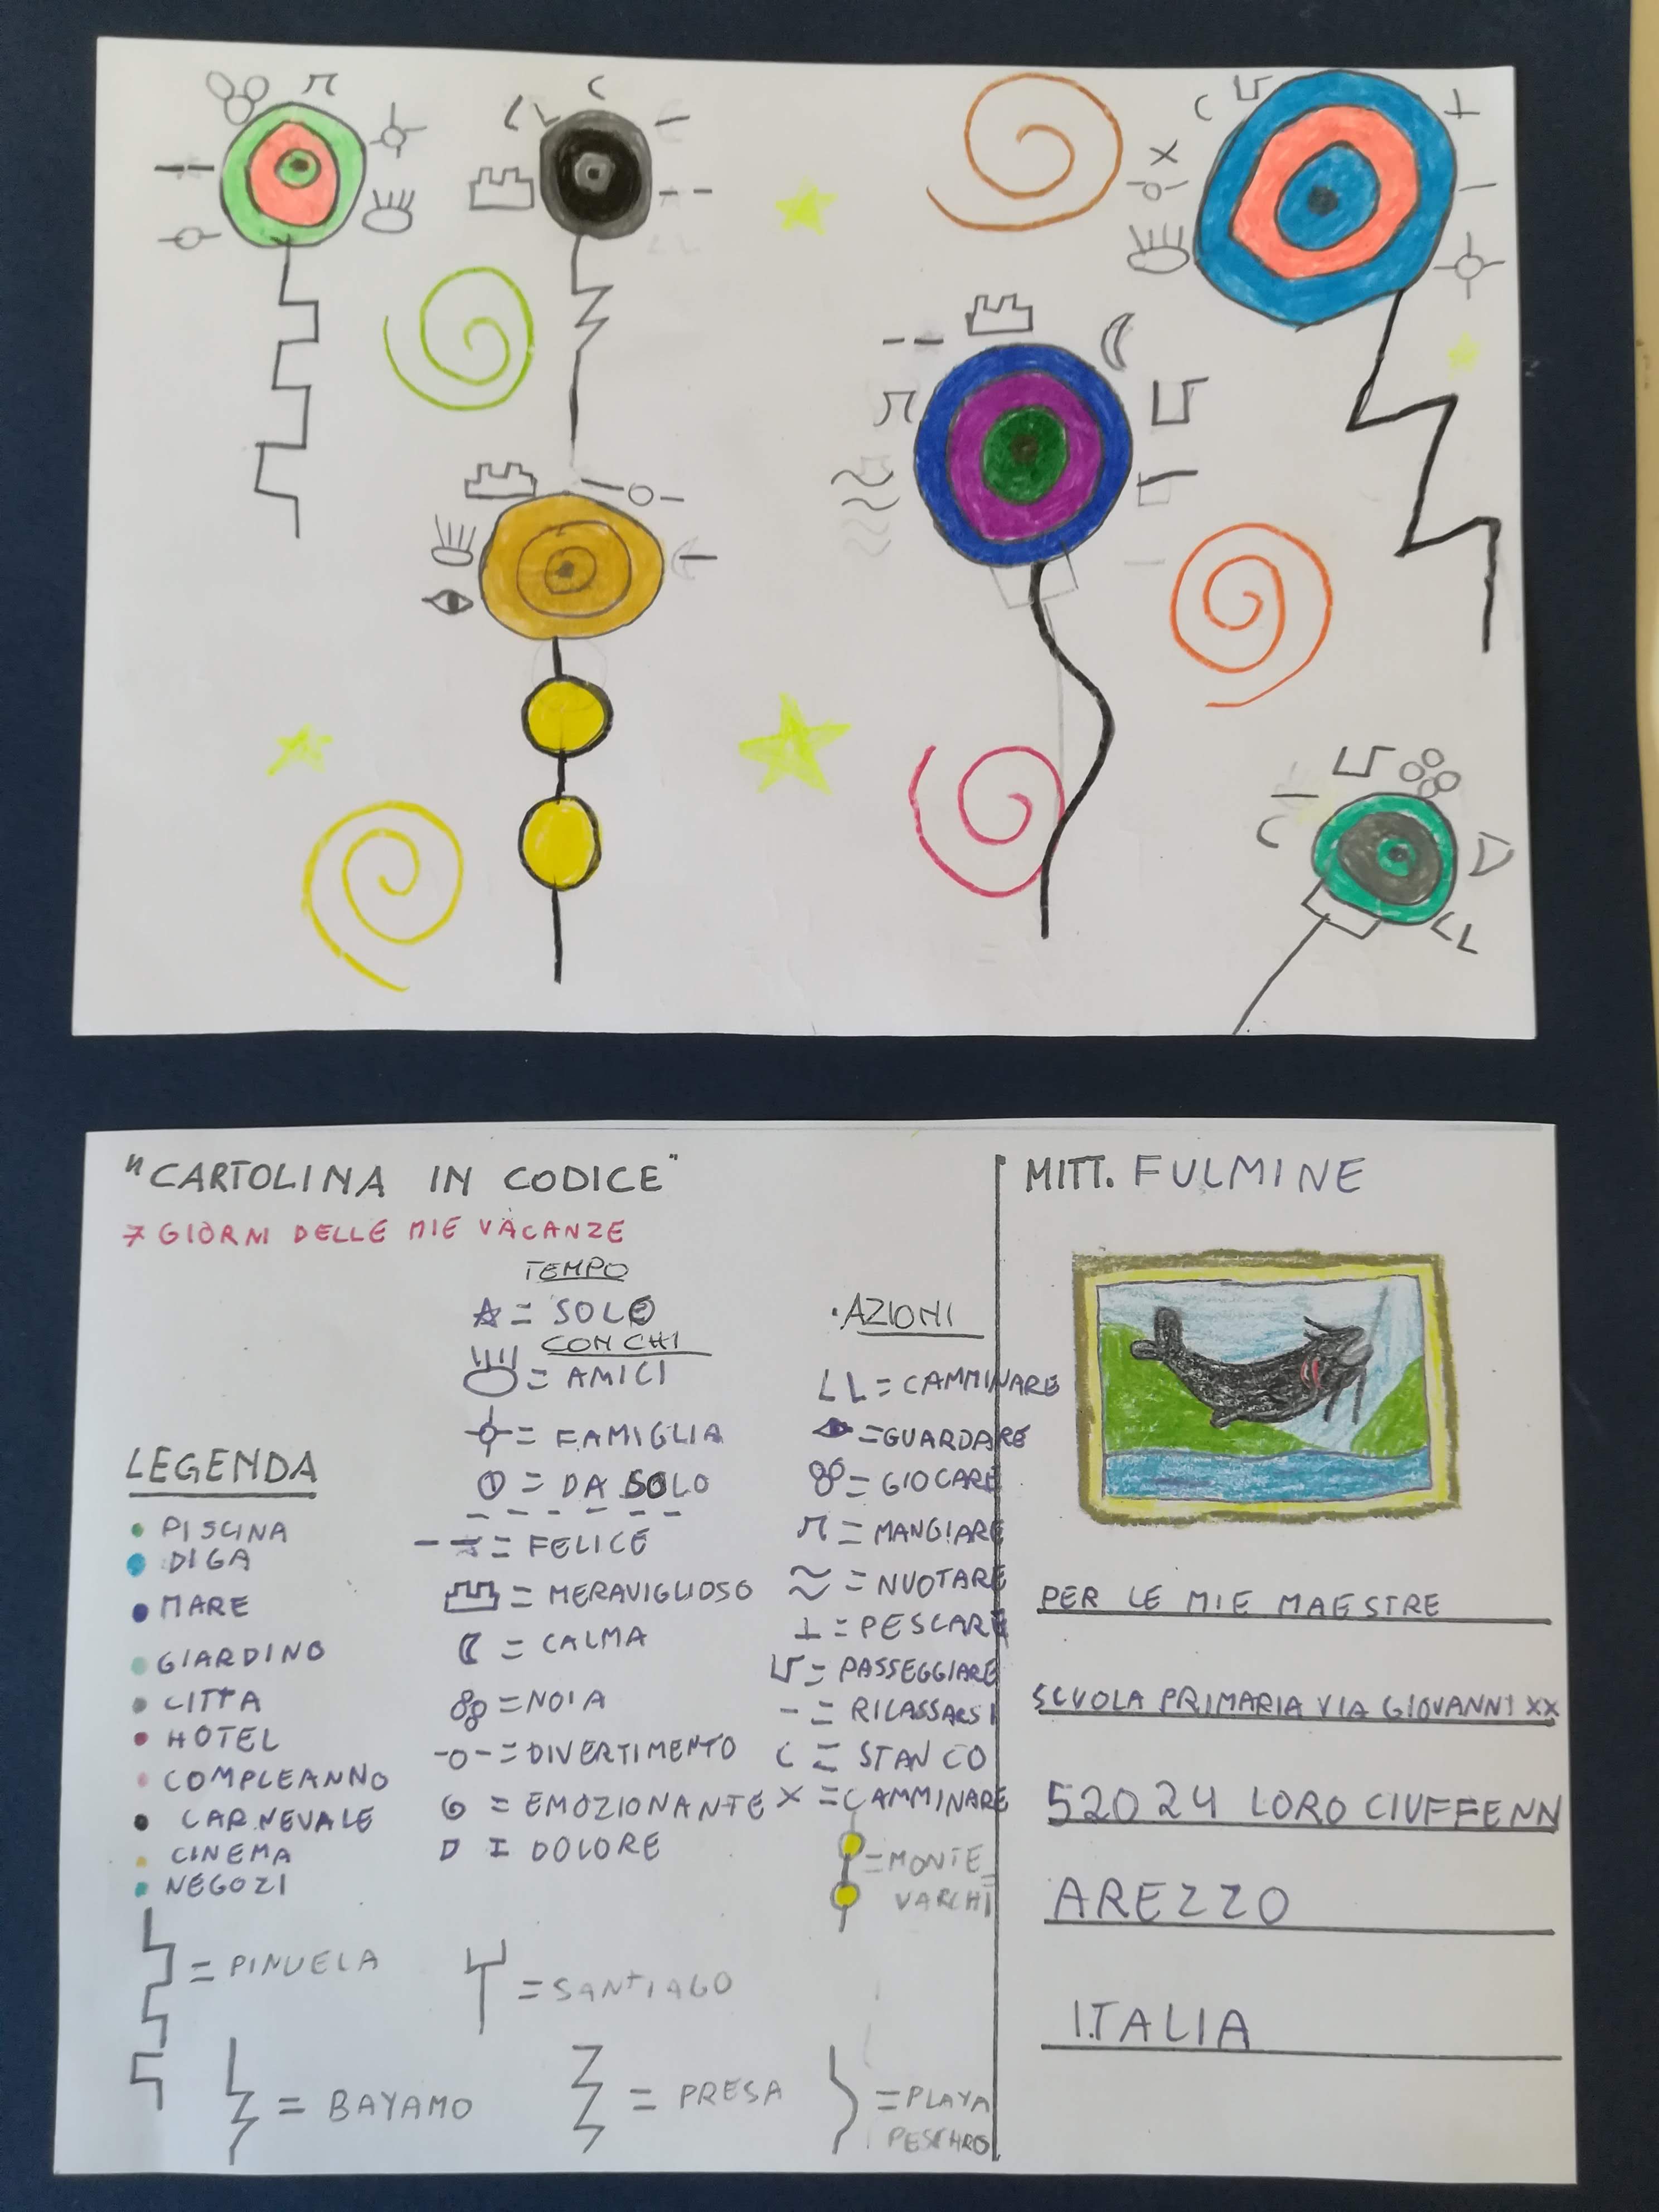 "CARTOLINA IN CODICE"
7 GIORNI DELLE MIE VACANZE
TEMPO
= SOLE
CON CHI
= AMICI
= FAMIGLIA
= DA SOLO
= FELICE
= MERAVIGLIOSO
= CALMA
= NOIA
-O- = DIVERTIMENTO
= EMOZIONANTE
D = DOLORE
• AZIONI
LL = CAMMINARE
= GUARDARE
= GIOCARE
= MANGIARE
= NUOTARE
⊥ = PESCARE
= PASSEGGIARE
- = RILASSARSI
C = STANCO
X = CAMMINARE
= MONTE
VARCHI
LEGENDA
• PISCINA
• DIGA
• MARE
• GIARDINO
• CITTA
• HOTEL
• COMPLEANNO
• CARNEVALE
• CINEMA
• NEGOZI
= PINUELA
= SANTIAGO
= BAYAMO
= PRESA
= PLAYA
MITT. FULMINE
PER LE MIE MAESTRE
SCUOLA PRIMARIA VIA GIOVANNI XX
52024 LORO CIUFFENN
AREZZO
ITALIA